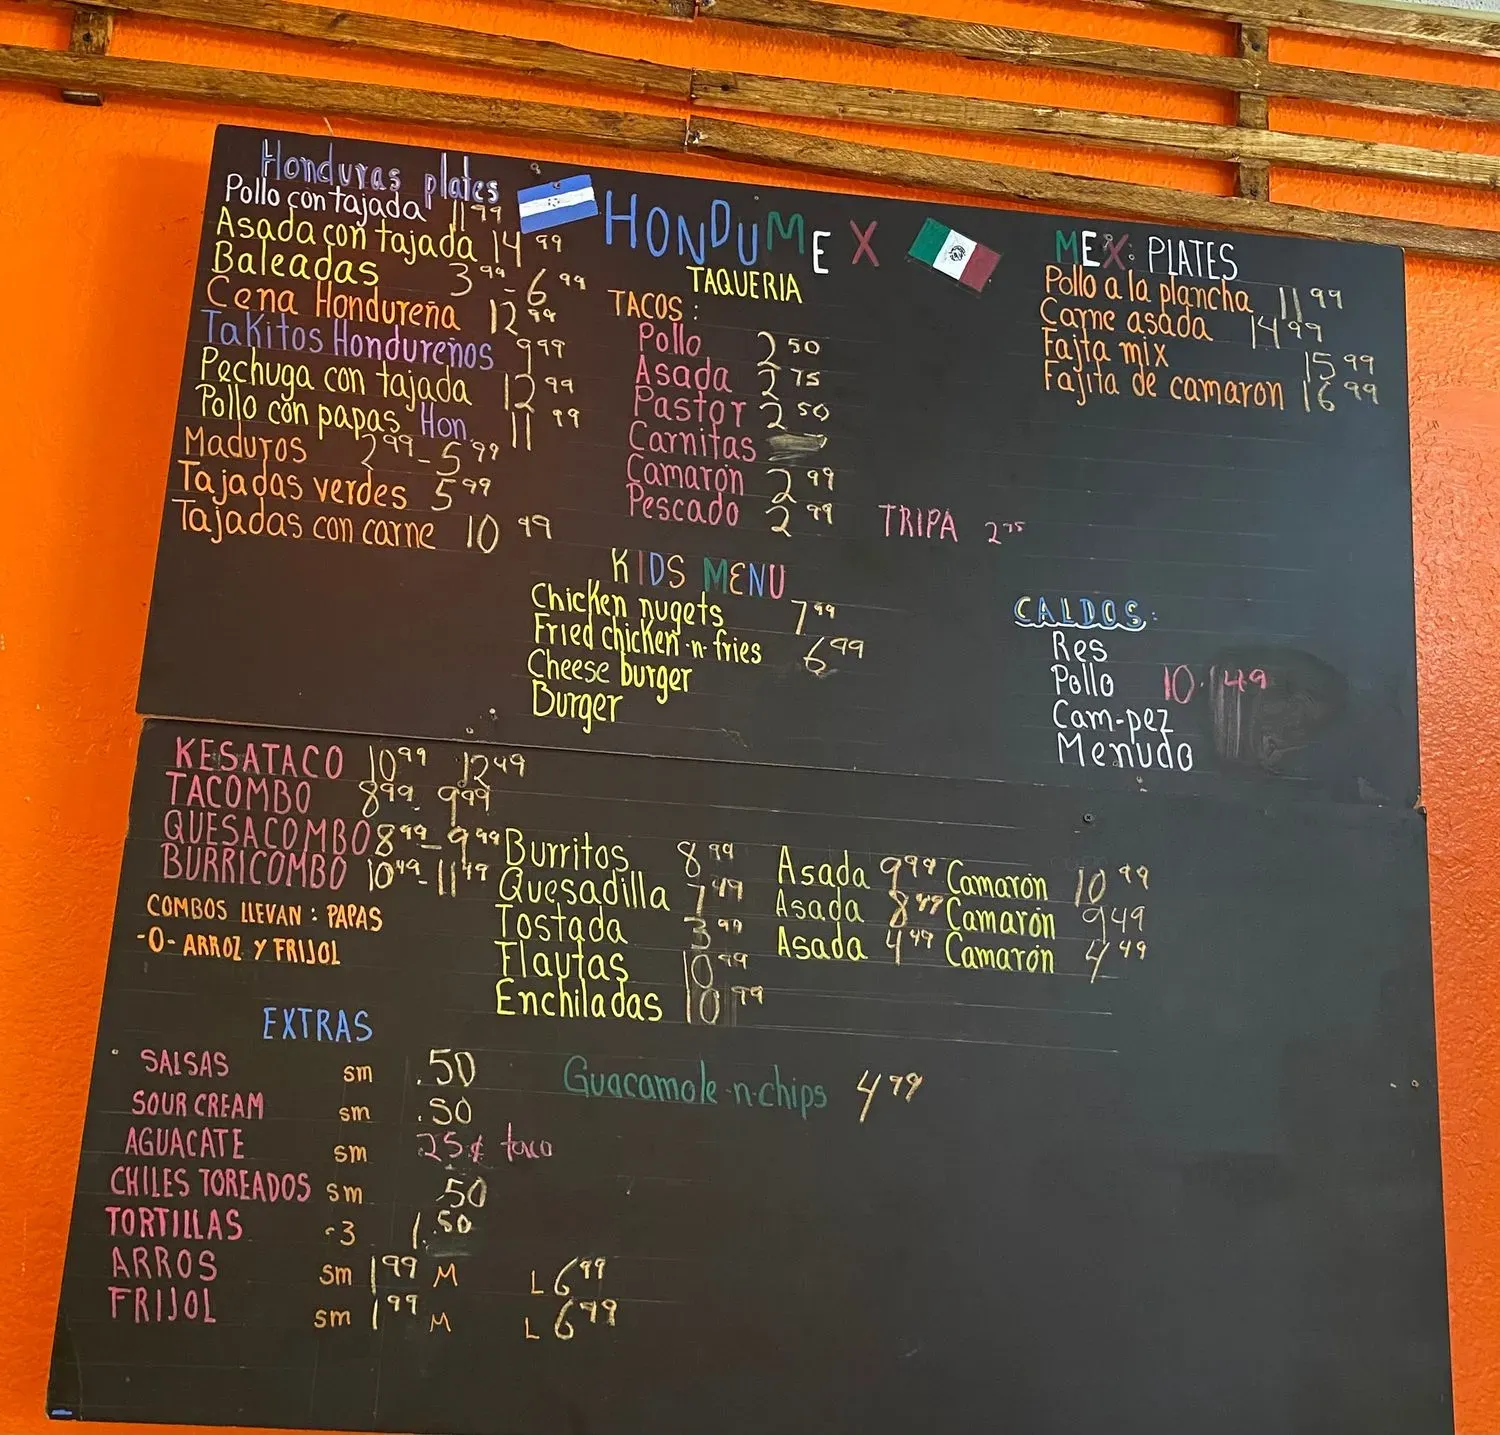 Honduras plates
Pollo con tajada 11.99
Asada con tajada 14.99
Baleadas 3.99 - 6.99
Cena Hondureña 12.99
Takitos Hondureños 9.99
Pechuga con tajada 12.99
Pollo con papas Hon. 11.99
Maduros 2.99 - 5.99
Tajadas verdes 5.99
Tajadas con carne 10.99
HONDUMEX
TAQUERIA
TACOS:
Pollo 2.50
Asada 2.75
Pastor 2.50
Carnitas
Camarón 2.99
Pescado 2.99
TRIPA 2.75
MEX: PLATES
Pollo a la plancha 11.99
Carne asada 14.99
Fajta mix 15.99
Fajita de camaron 16.99
KIDS MENU
Chicken nugets 7.99
Fried chicken-n-fries 6.99
Cheese burger
Burger
CALDOS:
Res
Pollo 10.49
Cam-pez
Menudo
KESATACO 10.99 12.49
TACOMBO 8.99 - 9.99
QUESACOMBO 8.99 - 9.99
BURRICOMBO 10.49 - 11.49
COMBOS LLEVAN: PAPAS
-O- ARROZ Y FRIJOL
Burritos 8.99 Asada 9.99 Camarón 10.99
Quesadilla 7.49 Asada 8.49 Camarón 9.49
Tostada 3.99 Asada 4.49 Camarón 4.49
Flautas 10.99
Enchiladas 10.99
EXTRAS
SALSAS sm .50
SOUR CREAM sm .50
AGUACATE sm .25¢ taco
CHILES TOREADOS sm .50
TORTILLAS -3 1.50
ARROS sm 1.99 M L 6.99
FRIJOL sm 1.99 M L 6.99
Guacamole-n-chips 4.79